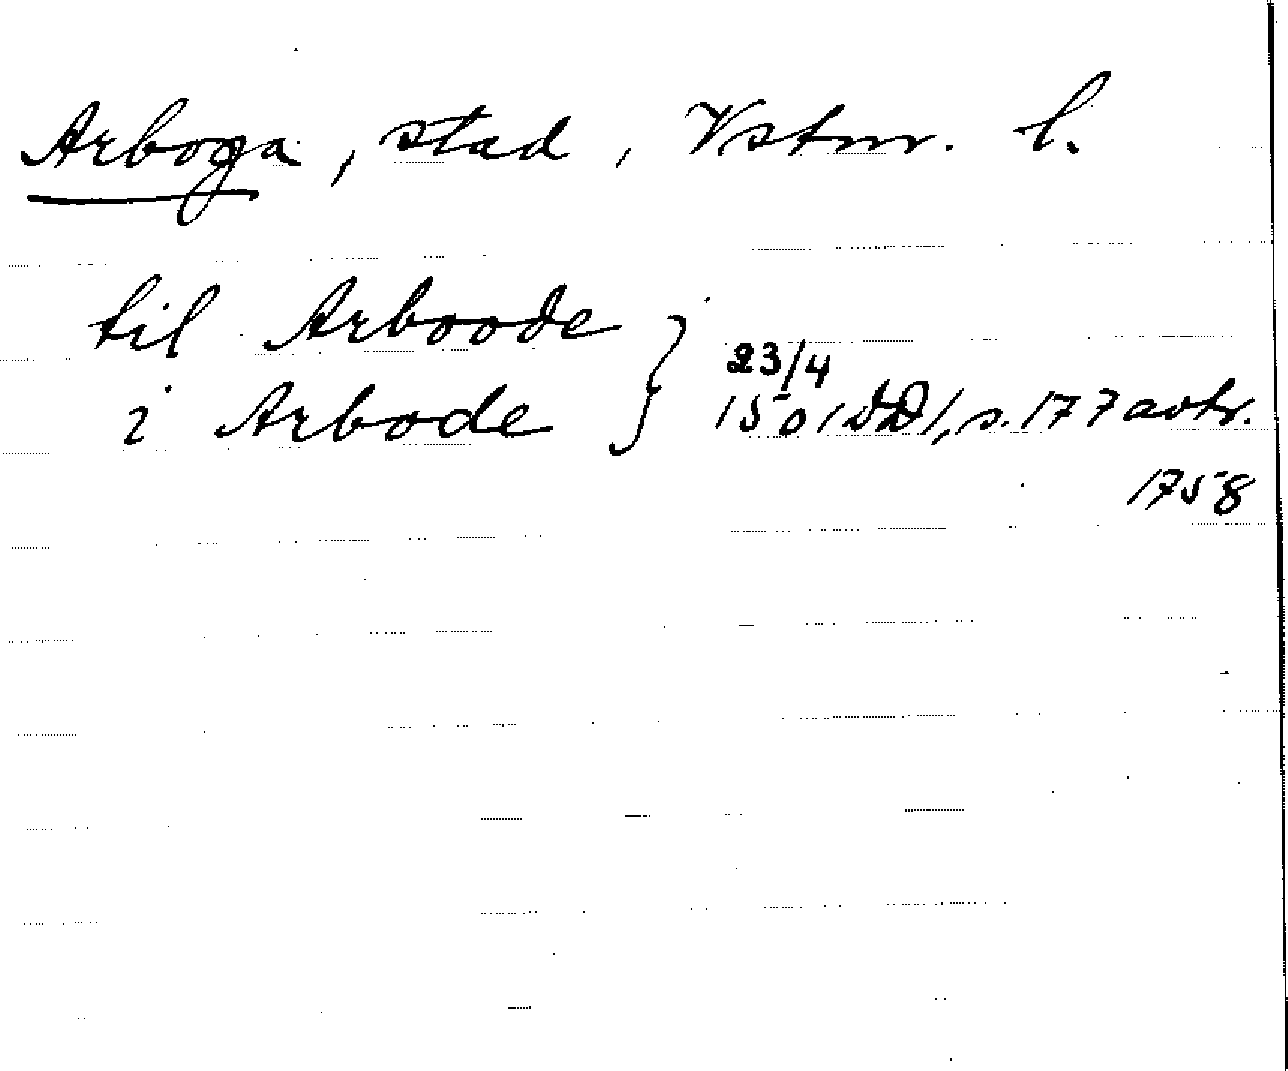 Arboga, stad, Vstm. l.
til Arboode
i Arbode
23/4
1501 DD1, s. 177 avtr.
1758